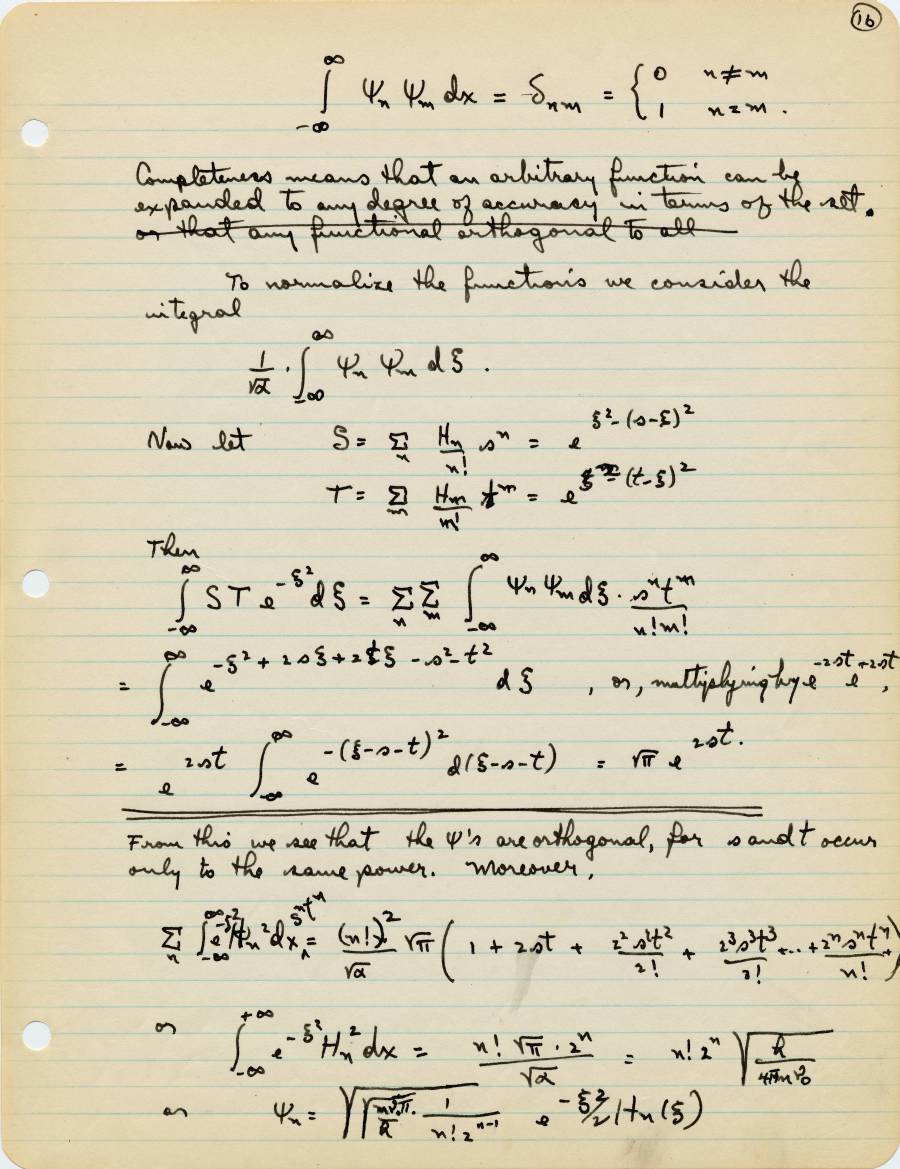 16
∫_{-∞}^{∞} Ψ_n Ψ_m dx = δ_{nm} = { 0 n≠m
1 n=m .
Completeness means that an arbitrary function can be
expanded to any degree of accuracy in terms of the set.
or that any functional orthogonal to all
To normalize the functions we consider the
integral
1/√α · ∫_{-∞}^{∞} Ψ_n Ψ_m dξ .
Now let S = Σ_n H_n/n! s^n = e^{ξ²-(s-ξ)²}
T = Σ_m H_m/m! t^m = e^{ξ²-(t-ξ)²}
Then
∫_{-∞}^{∞} S T e^{-ξ²} dξ = Σ_n Σ_m ∫_{-∞}^{∞} Ψ_n Ψ_m dξ · s^n t^m / n! m!
= ∫_{-∞}^{∞} e^{-ξ² + 2sξ + 2tξ - s² - t²} dξ , or, multiplying by e^{-2st} e^{+2st},
= e^{2st} ∫_{-∞}^{∞} e^{-(ξ-s-t)²} d(ξ-s-t) = √π e^{2st}.
From this we see that the Ψ's are orthogonal, for s and t occur
only to the same power. Moreover,
Σ_n ∫_{-∞}^{∞} e^{-ξ²} H_n² dx s^n t^n = (n!)²/√α √π ( 1 + 2st + 2² s² t²/2! + 2³ s³ t³/3! + ... + 2^n s^n t^n/n! + )
or ∫_{-∞}^{+∞} e^{-ξ²} H_n² dx = n! √π · 2^n / √α = n! 2^n √(h/4πmν₀)
or Ψ_n = √(√(mν₀π/h) · 1/(n! 2^{n-1})) e^{-ξ²/2} H_n(ξ)